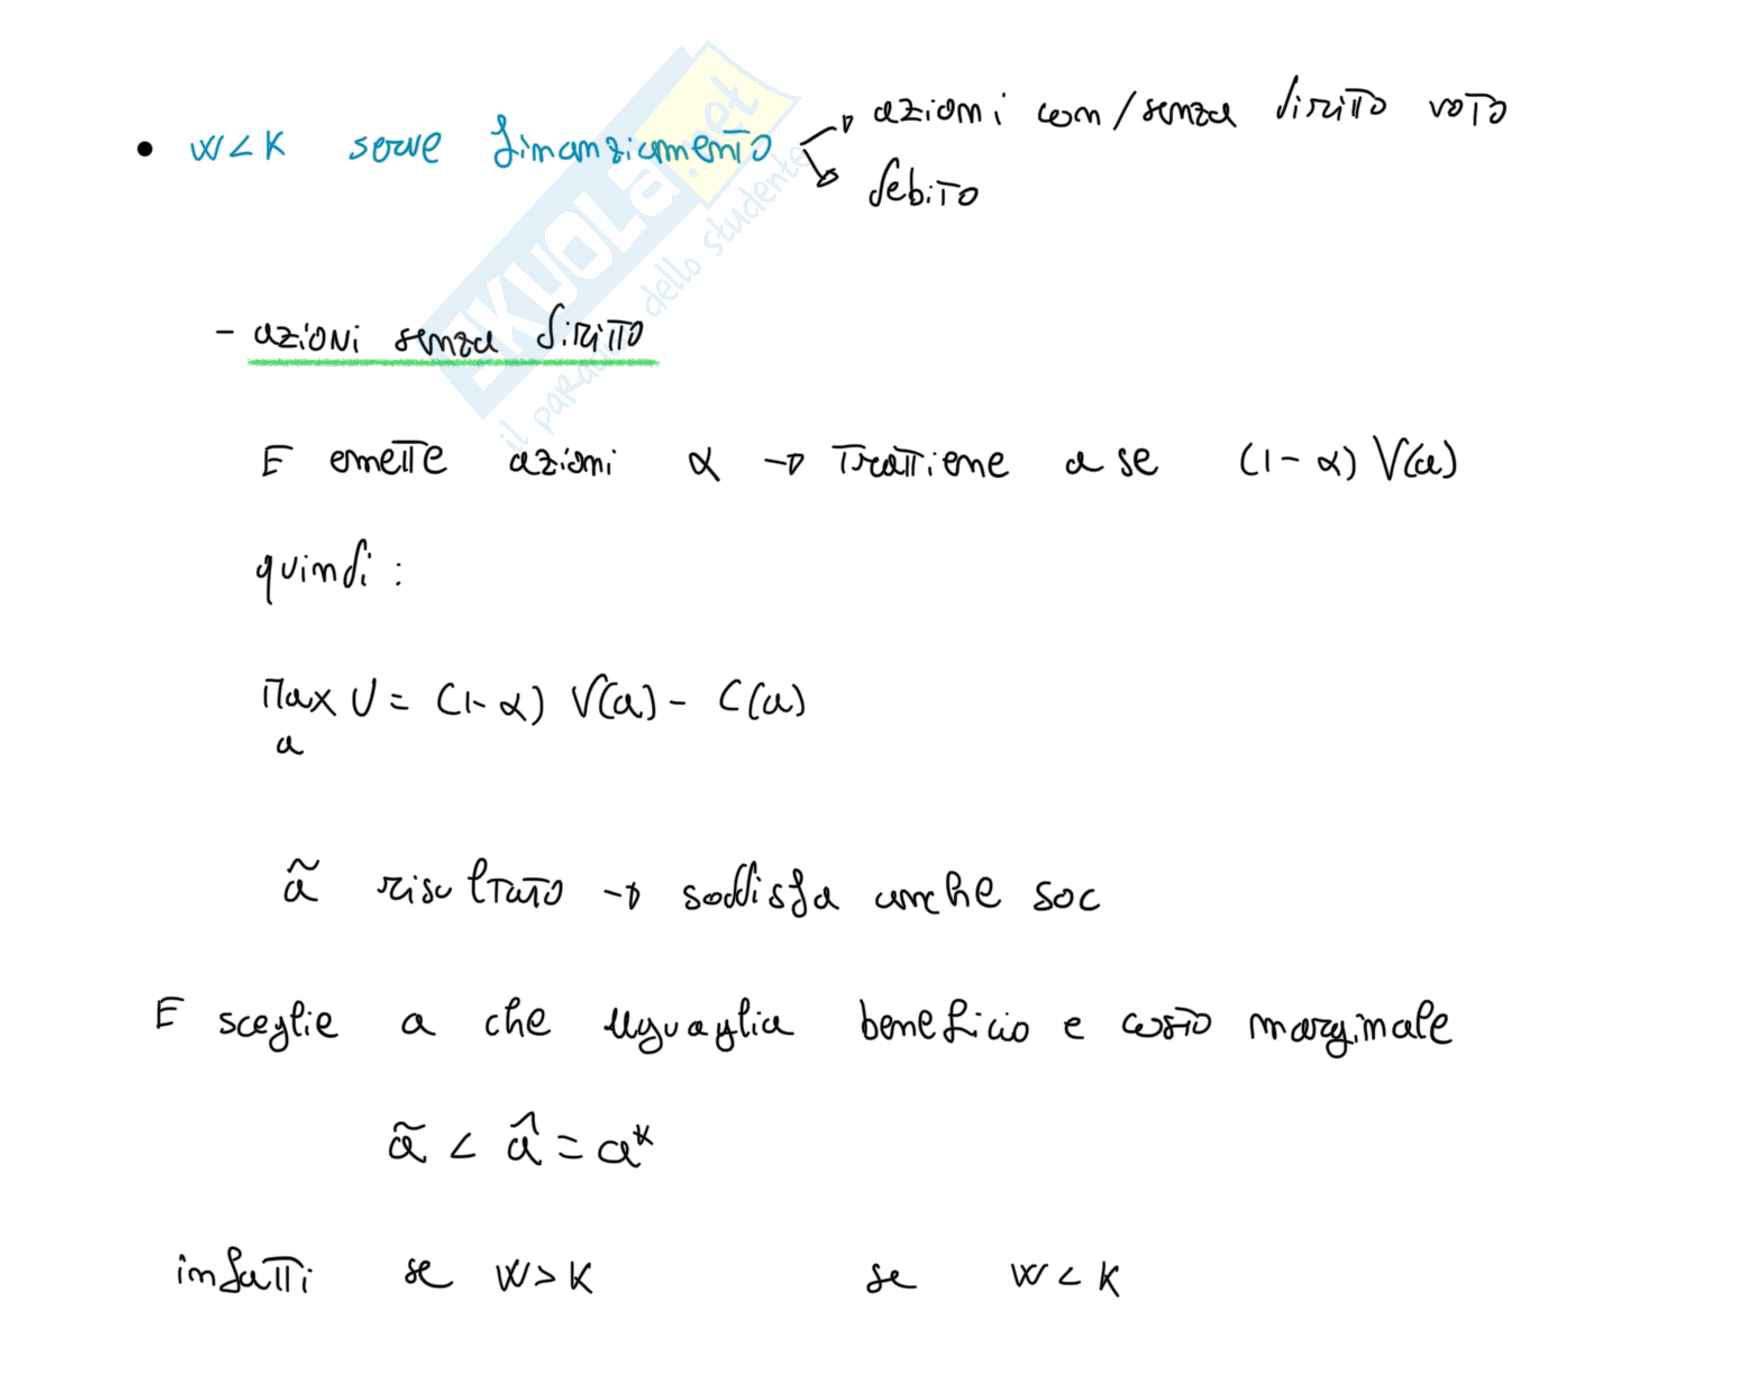 • W<K serve finanziamento → azioni con/senza diritto voto
→ debito
- azioni senza diritto
E emette azioni α → trattiene a se (1-α) V(a)
quindi:
Max U = (1-α) V(a) - C(a)
a
ã risultato → soddisfa anche soc
E sceglie a che uguaglia beneficio e costo marginale
ã < â = a*
infatti se W>K se W<K
SKUOLA.net
il paradiso dello studente